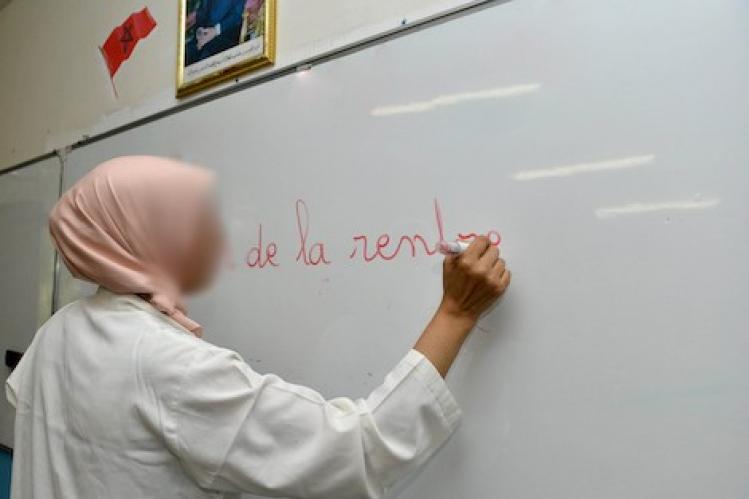 de la rentre